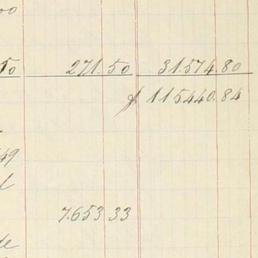 00
50 271.50 31574.80
$ 115440.84
49
d
7.653 33
de